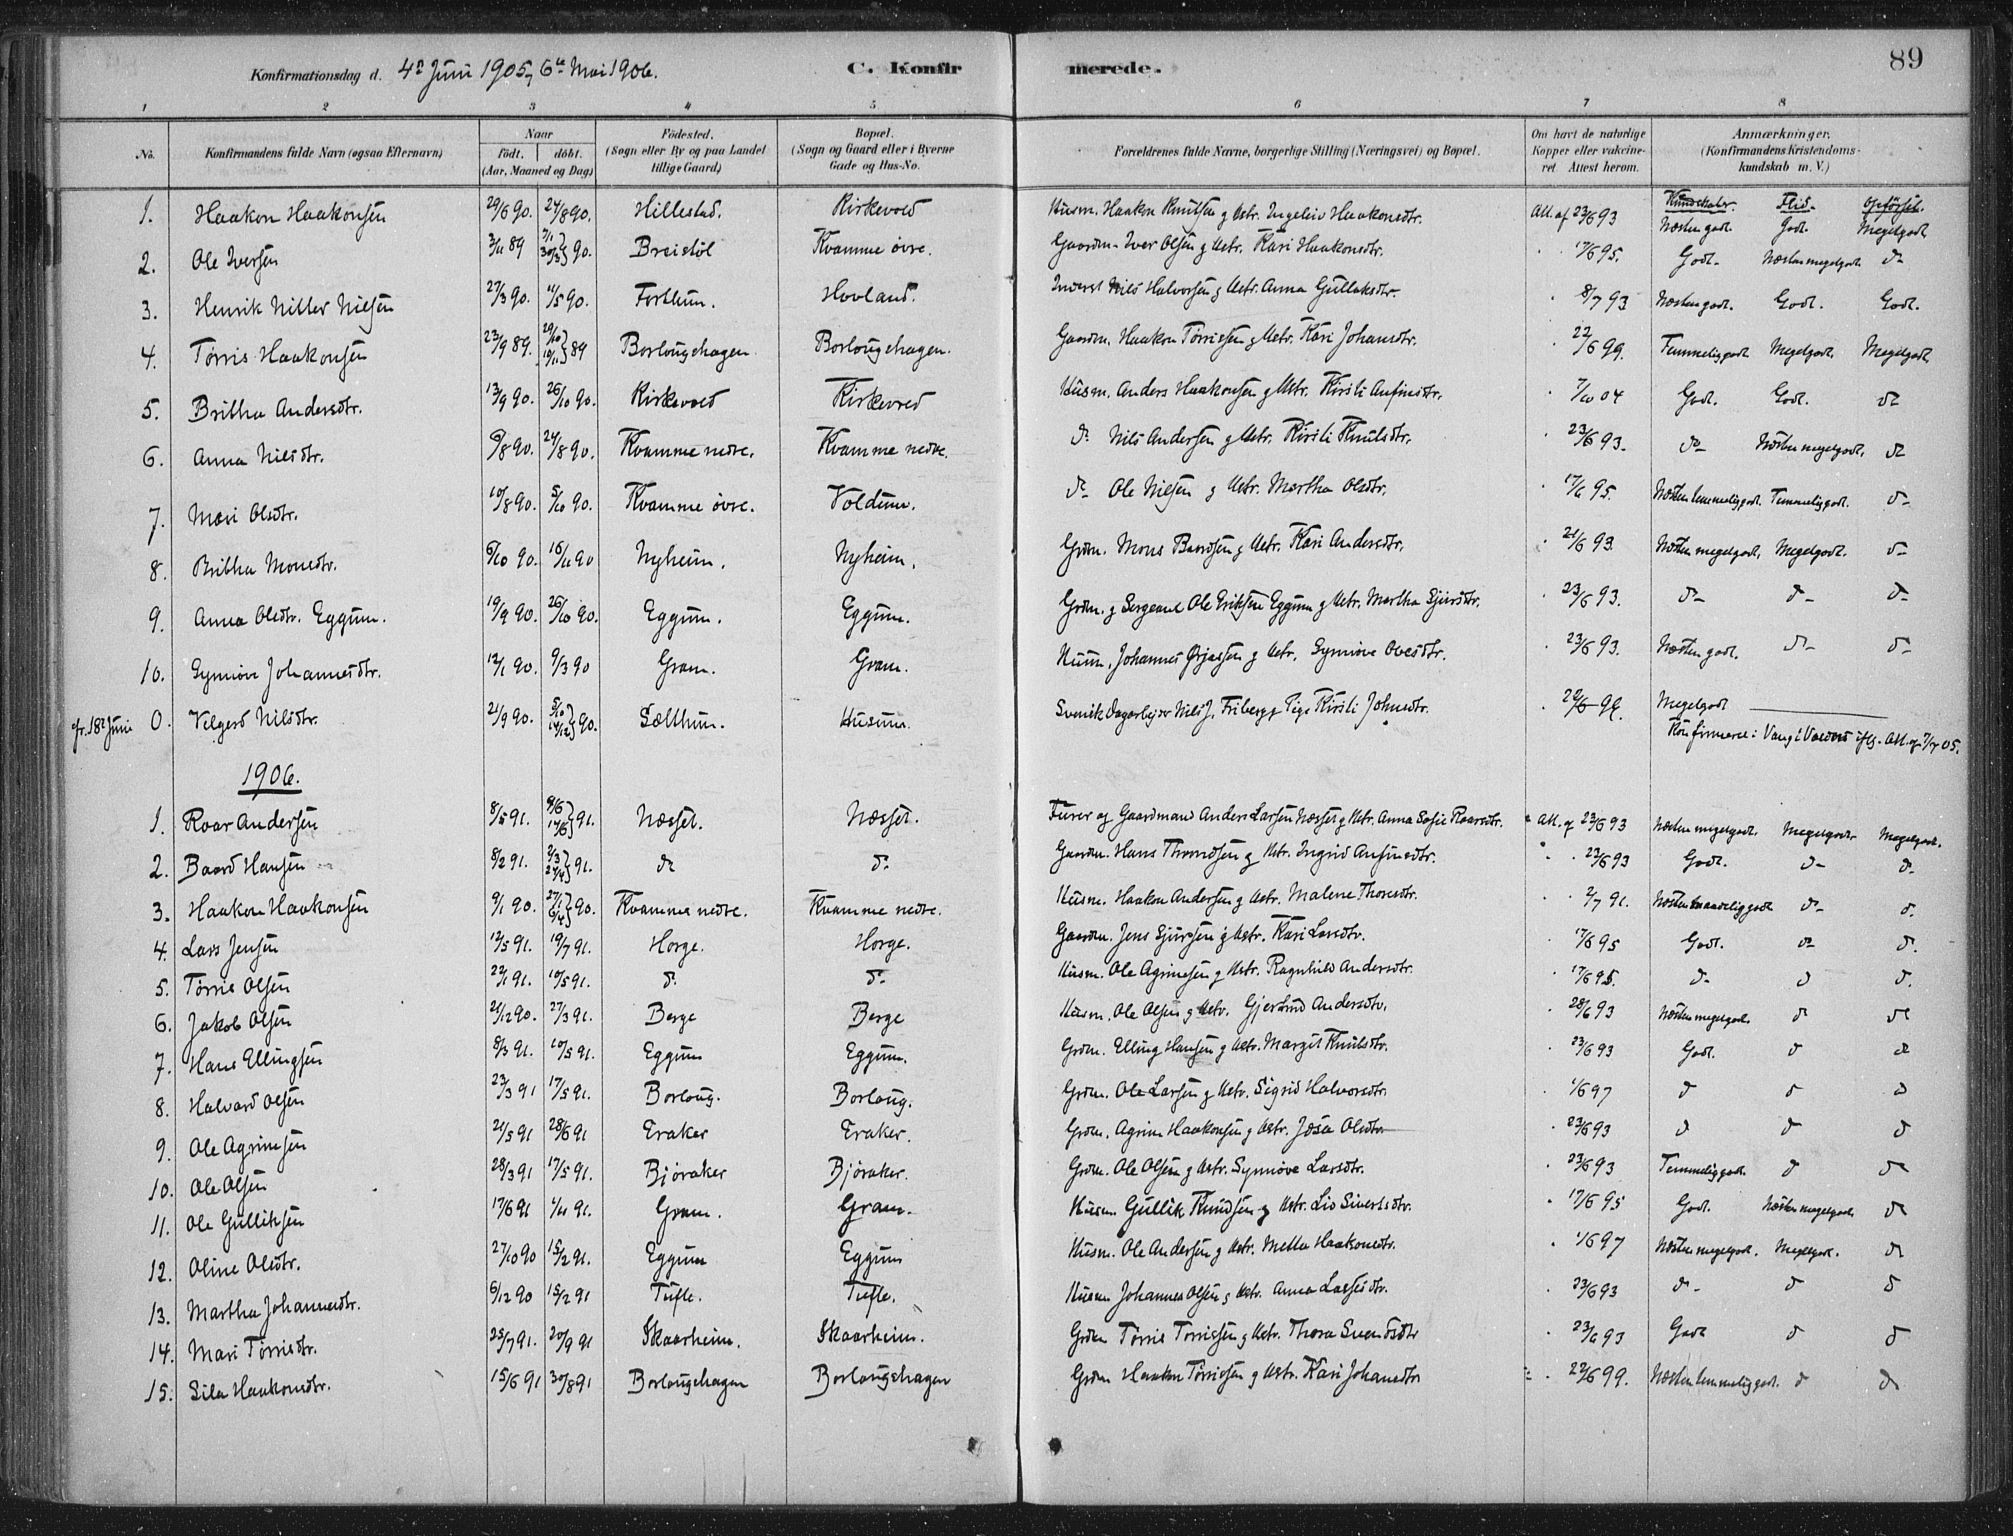 89
Konfirmationsdag d. 4de Juni 1905, 6te Mai 1906. C. Konfirmerede.
1 2 3 4 5 6 7 8
No. Konfirmandens fulde Navn (ogsaa Efternavn) Naar födt. döbt. (Aar, Maaned og Dag) Födested. (Sogn eller By og paa Landet tillige Gaard) Bopæl. (Sogn og Gaard eller i Byerne Gade og Hus-No. Forældrenes fulde Navne, borgerlige Stilling (Næringsvei) og Bopæl. Om havt de naturlige Kopper eller vakcineret Attest herom. Anmærkninger. (Konfirmandens Kristendomskundskab m. V.)
Kundskaber. Flid. Opförsel.
1. Haakon Haakonsen 29/6 90. 24/8 90. Hillestad. Kirkevold Husm. Haakon Knutsen g Ustr. Ingeleiv Haakonsdtr. Att. af 23/6 93 Næsten godt. Godt. Megetgodt
2. Ole Iversen 3/11 89 90. Breistöl Kvamme övre. Gaardm. Iver Olsen g Ustr. Kari Haakonsdtr. 17/6 95. Godt. Næsten megetgodt d-
3. Henrik Nitter Nilsen 27/3 90. 11/5 90. Forthun. Hovland. Inderst Nils Halvorsen g Ustr. Anna Gullaksdtr. 8/7 93 Næsten godt. Godt. Godt.
4. Törris Haakonsen 23/9 89. 89 Borlaughagen. Borlaughagen. Gaardm. Haakon Törrissen g Ustr. Kari Johansdtr. 22/6 99. Temmeliggodt Megetgodt. Megetgodt
5. Britha Andersdtr. 13/9 90. 26/10 90. Kirkevold Kirkevold Husm. Anders Haakonsen g Ustr. Kirsti Anfinsdtr. 7/10 04 Godt. Godt. do
6. Anna Nilsdtr. 6/8 90. 24/8 90. Kvamme nedre. Kvamme nedre. do Nils Andersen g Ustr. Kirsti Knutsdtr. 23/6 93. do Næsten megetgodt. do
7. Mari Olsdtr. 10/8 90. 5/10 90. Kvamme övre. Voldum. do Ole Nilsen g Ustr. Martha Olsdtr. 17/6 95. Næsten temmeliggodt Temmeliggodt. d-
8. Britha Monsdtr. 6/10 90. 16/11 90 Nyheim. Nyheim. Grdm. Mons Baardsen g Ustr. Kari Andersdtr. 21/6 93. Næsten megetgodt. Megetgodt. d-
9. Anna Olsdtr. Eggum. 19/9 90. 26/10 90. Eggum. Eggum. Grdm. g Sergeant Ole Eriksen Eggum g Ustr. Martha Sjursdtr. 23/6 93. d- d- d-
10. Synnöve Johannesdtr. 12/1 90. 9/3 90 Gram. Gram. Husm. Johannes Ørjassen g Ustr. Synnöve Olsdtr. 23/6 93. Næsten godt. d- d-
fr. 18de Juni 0. Velgerd Nilsdtr. 21/9 90. 5/10 14/12 90. Sælthun. Husum. Svensk Dagarbejder Nils J. Friberg g Pige Kirsti Johnsdtr. 22/6 99. Megetgodt
Konfirmeret i Vang i Valdres iflg. Att. af 7/7 05.
1906.
1. Roar Andersen 8/5 91. 91. Næsset. Næsset. Furer og Gaardmand Anders Larsen Næsset g Ustr. Anna Sofie Roarsdtr. Att. af 23/6 93 Næsten megetgodt. Megetgodt Megetgodt.
2. Baard Hansen 8/2 91. 2/3 91. do do Gaardm. Hans Throndsen g Ustr. Ingrid Anfinsdtr. 23/6 93 Godt. d- d-
3. Haakon Haakonsen 9/1 90. 27/1 90. Kvamme nedre. Kvamme nedre. Husm. Haakon Andersen g Ustr. Malene Thomsdtr. 2/7 91. Næsten temmeliggodt d- d.
4. Lars Jensen 12/5 91. 19/7 91. Horge. Horge. Gaardm. Jens Sjursen g Ustr. Kari Larsdtr. 17/6 95 Godt. do d.
5. Törris Olsen 22/1 91. 10/5 91. do do Husm. Ole Agrimsen g Ustr. Ragnhild Andersdtr. 17/6 95. d- d d.
6. Jakob Olsen 21/12 90. 27/3 91. Berge Berge Husm. Ole Olsen g Ustr. Gjertrud Andersdtr. 28/6 93 Næsten megetgodt. d do
7. Hans Ellingsen 8/3 91. 10/5 91. Eggum Eggum. Grdm. Elling Hansen g Ustr. Margit Knutsdtr. 23/6 93 Godt. d do
8. Halvard Olsen 23/3 91 17/5 91. Borlaug. Borlaug. Grdm. Ole Larsen g Ustr. Sigrid Halvorsdtr. 1/6 97 d d d
9. Ole Agrimsen 21/5 91 28/6 91 Eraker Eraker. Grdm. Agrim Haakonsen g Ustr. Jøsa Olsdtr. 23/6 93 d d d
10. Ole Olsen 28/3 91 17/5 91. Björaker Björaker. Grdm. Ole Olsen g Ustr. Synnöve Larsdtr. 23/6 93 Temmeliggodt d do
11. Ole Gulliksen 17/6 91 1/11 91. Gram. Gram. Husm. Gullik Knudsen g Ustr. Lis Sivertsdtr. 17/6 95 Godt. Næsten megetgodt do
12. Oline Olsdtr. 27/10 90 15/2 91. Eggum Eggum Husm. Ole Andersen g Ustr. Metta Haakonsdtr. 1/6 97 Næsten megetgodt. Megetgodt. do
13. Martha Johannesdtr. 6/12 90 15/2 91 Tufte. Tufte. Husm Johannes Olsen g Ustr. Anna Larsdtr. 23/6 93 d- d d
14. Mari Törrisdtr. 25/7 91. 20/9 91 Skaarheim. Skaarheim. Grdm Törris Torrissen g Ustr. Thora Svendsdtr 23/6 93 Godt d d
15. Sila Haakonsdtr. 15/6 91 30/8 91 Borlaughagen Borlaughagen Grdm Haakon Törrissen g Ustr. Kari Johansdtr 22/6 99. Næsten temmeliggodt. d do